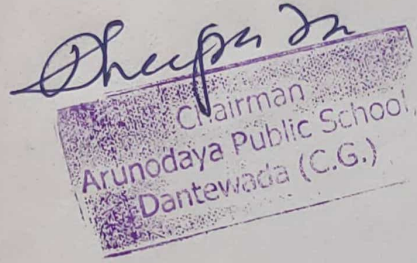 Chairman
Arunodaya Public School
Dantewada (C.G.)